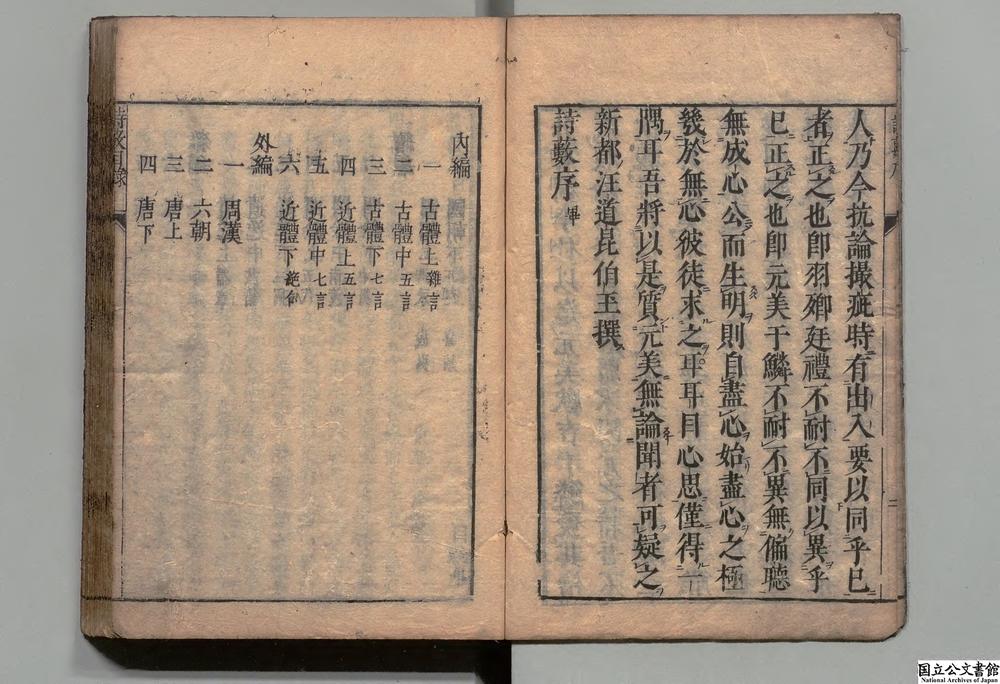 人乃今抗論撮疵時有出入要以同乎已
者正之也即羽卿廷禮不耐不同以異乎
已正之也即元美于鱗不耐不異無偏聽
無成心公而生明則自盡心始盡心之極
幾於無心彼徒求之耳耳目心思僅得一
隅耳吾將以是質元美無論聞者可疑之
新都汪道昆伯玉撰
詩藪序畢
內編
一 古體上雜言
二 古體中五言
三 古體下七言
四 近體上五言
五 近體中七言
六 近體下絕句
外編
一 周漢
二 六朝
三 唐上
四 唐下
詩藪目錄
国立公文書館
National Archives of Japan